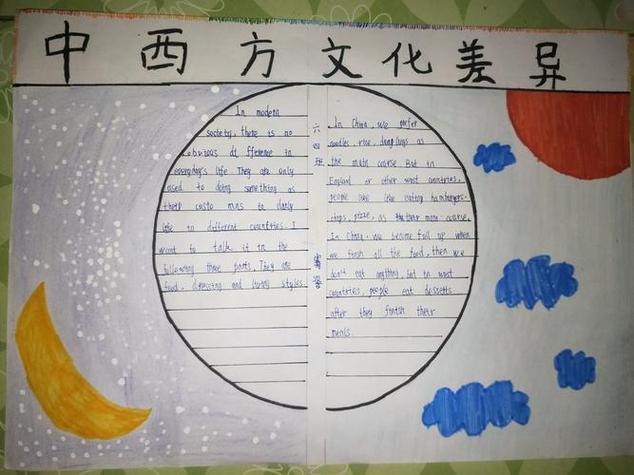 中西方文化差异
In modern
society, there is no
obvious difference in
everyone's life They are only
used to doing something as
their customs to daily
life in different countries. I
want to talk it in the
following three parts, They are
food, dressing and living styles.
六四班
In China, we prefer
noodles, rice, dumplings as
the main coarse But in
England or other west countries,
people like eating hamburgers,
chips, pizza, as their main coarse.
In China, we become full up when
we finish all the food, then we
don't eat anything, but in west
countries, people eat desserts
after they finish their
meals